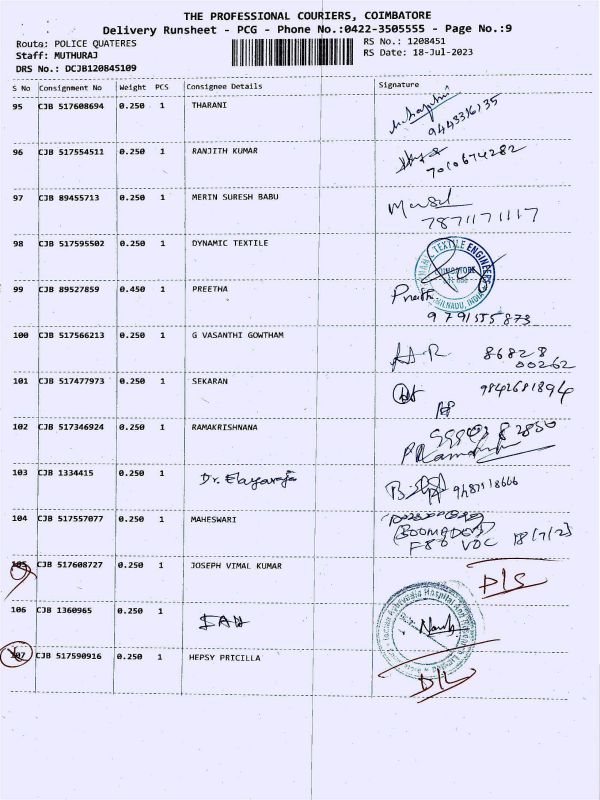 THE PROFESSIONAL COURIERS, COIMBATORE
Delivery Runsheet - PCG - Phone No.:0422-3505555 - Page No.:9
Route: POLICE QUATERES
RS No.: 1208451
Staff: MUTHURAJ
RS Date: 18-Jul-2023
DRS No.: DCJB120845109
S No Consignment No Weight PCS Consignee Details Signature
95 CJB 517608694 0.250 1 THARANI
9443316135
96 CJB 517554511 0.250 1 RANJITH KUMAR
7010674282
97 CJB 89455713 0.250 1 MERIN SURESH BABU
7871171117
98 CJB 517595502 0.250 1 DYNAMIC TEXTILE
TEXTILE ENGINEERS
99 CJB 89527859 0.450 1 PREETHA
Preetha
9791555873
100 CJB 517566213 0.250 1 G VASANTHI GOWTHAM
86828
00262
101 CJB 517477973 0.250 1 SEKARAN
9842681894
102 CJB 517346924 0.250 1 RAMAKRISHNANA
103 CJB 1334415 0.250 1 Dr. Elayaraja
9487118666
104 CJB 517557077 0.250 1 MAHESWARI
(BOOMADEVI)
F80 VOC 18/7/23
105 CJB 517608727 0.250 1 JOSEPH VIMAL KUMAR
D/L
106 CJB 1360965 0.250 1
107 CJB 517590916 0.250 1 HEPSY PRICILLA
D/L